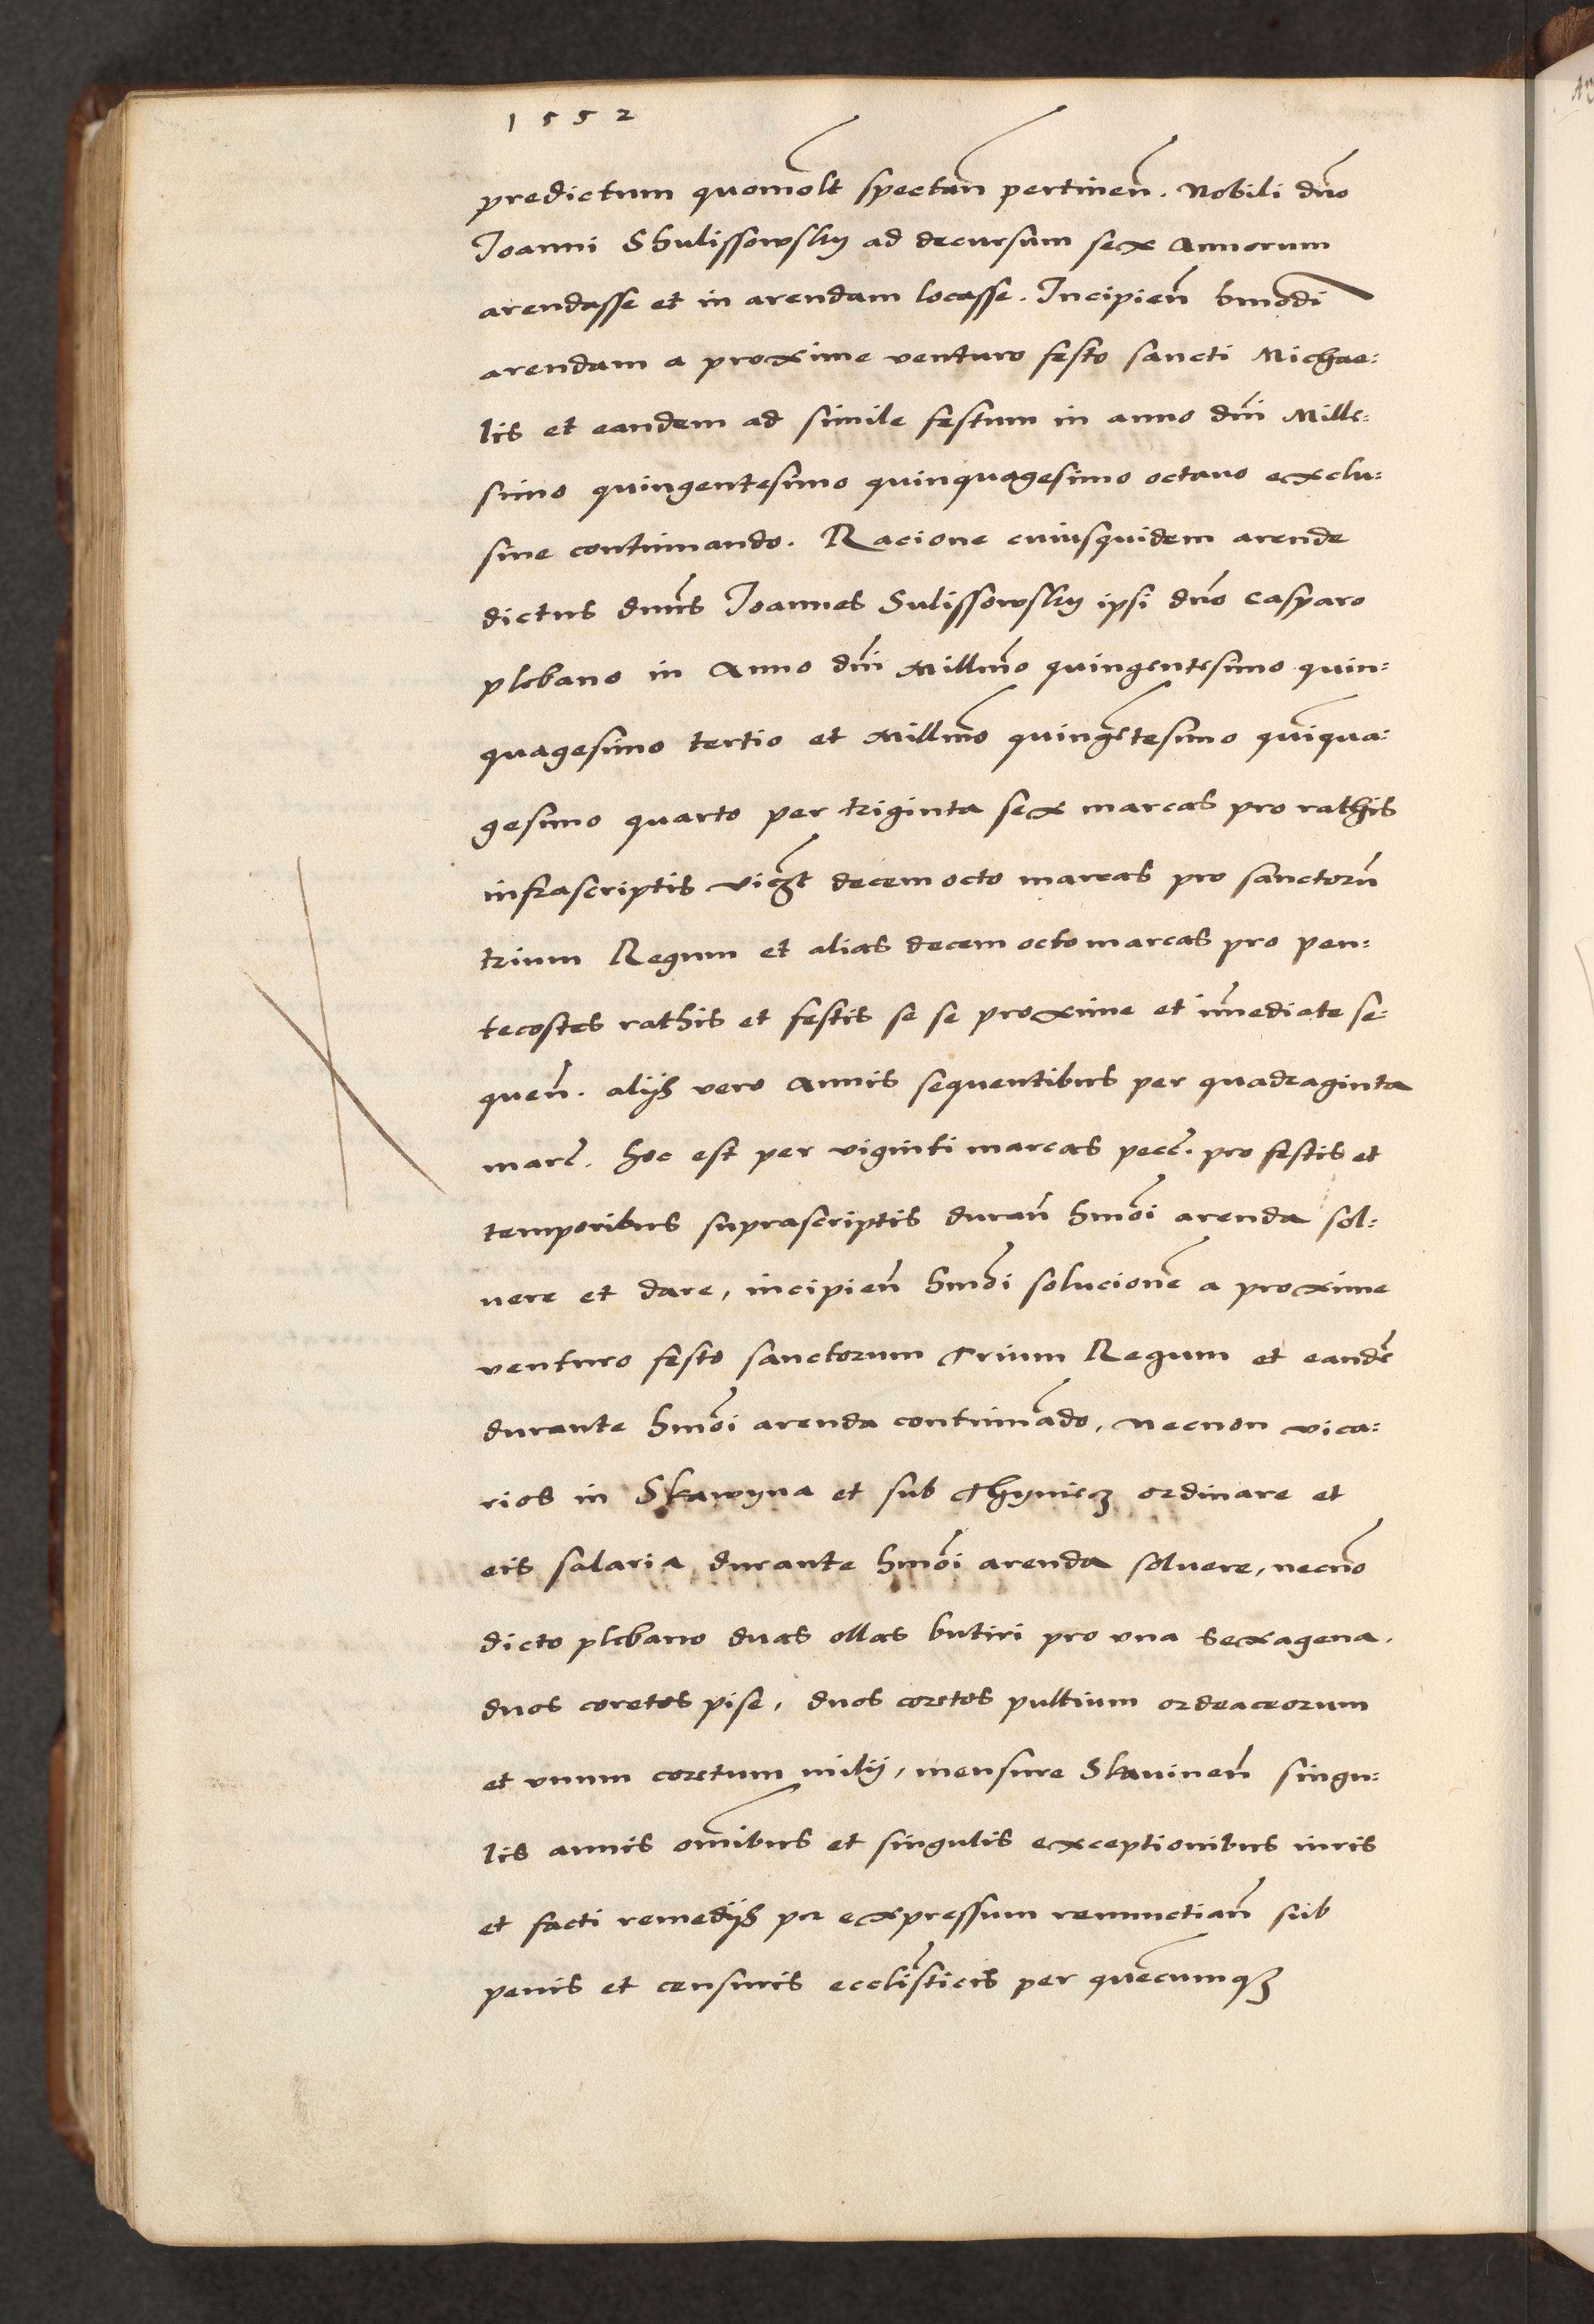 1552
predictum quomolt spectan pertinen. Nobili dno
Joanni Shulissowsky ad decursum sex Annorum
arendasse et in arendam locasse. Incipien hmodi
arendam a proxime venturo festo sancti Michae:
lis et eandem ad simile festum in anno dni Mille:
simo quingentesimo quinquagesimo octavo exclu:
sive continuando. Racione cuiusquidem arende
dictus dnus Joannes Sulissowsky ipsi dno Casparo
plebano in Anno dni Millmo quingentesimo quin:
quagesimo tertio et Millmo quingetesimo quiqua:
gesimo quarto per triginta sex marcas pro rathis
infrascriptis viczt decem octo marcas pro sanctoru
trium Regum et alias decem octo marcas pro pen:
tecostes rathis et festis se se proxime et imediate se:
quen. alijs vero Annis sequentibus per quadraginta
marc. hoc est per viginti marcas pecc. pro festis et
temporibus suprascriptis duran hmoi arenda sol:
uere et dare, incipien hmoi solucione a proxime
venturo festo sanctorum Trium Regum et eande
durante hmoi arenda continuado, necnon vica:
rios in Skawyna et sub Thyniecz ordinare et
eis salaria durante hmoi arenda soluere, necno
dicto plebano duas ollas butiri pro una sexagena,
duos coretos pise, duos coretos pultium ordeaceorum
et unum coretum milij, mensure Skauinen singu:
lis annis omibus et singulis exceptionibus iuris
et facti remedijs per expressum renunctian sub
penis et censuris eccliasticis per quecumqz